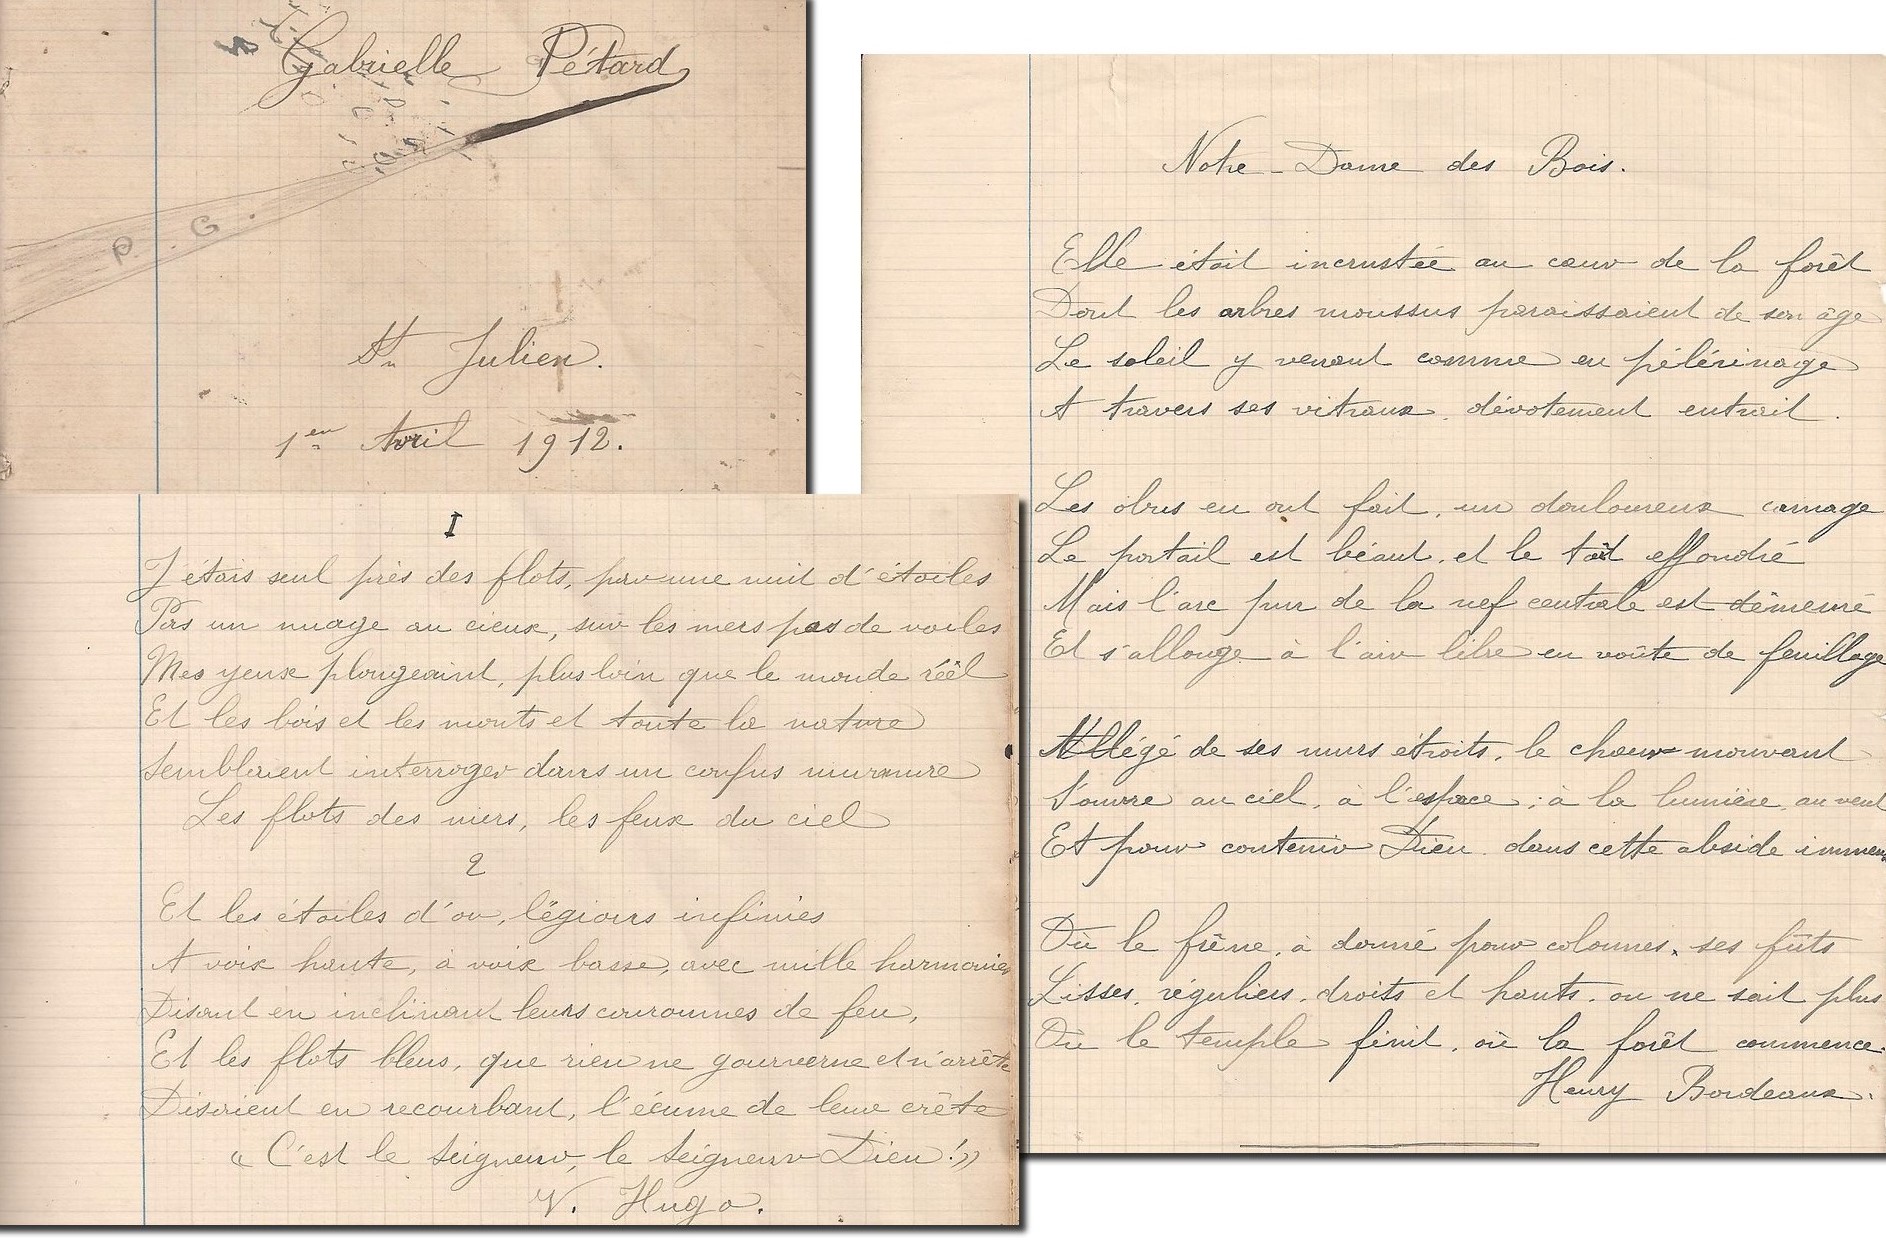 Gabrielle Pétard
P. G.
St Julien.
1er Avril 1912.
I
J'étais seul près des flots, par une nuit d'étoiles
Pas un nuage au cieux, sur les mers pas de voiles
Mes yeux plongeaint, plus loin que le monde réêl
Et les bois et les monts et toute la nature
Semblaient interroger dans un confus murmure
Les flots des mers, les feux du ciel
2
Et les étoiles d'or, légions infinies
A voix haute, à voix basse, avec mille harmonies
Disant en inclinant leurs couronnes de feu,
Et les flots bleus, que rien ne gourverne et n'arrête
Disaient en recourbant, l'écume de leur crête
« C'est le Seigneur, le Seigneur Dieu !»
V. Hugo.
Notre-Dame des Bois.
Elle était incrustée au cœur de la forêt
Dont les arbres moussus paraissaient de son âge
Le soleil y venant comme en pélérinage
A travers ses vitraux, dévotement entrait.
Les obus en ont fait, un douloureux carnage
Le portail est béant, et le toit effondré
Mais l'arc pur de la nef centrale est démeuré
Et s'allonge à l'air libre en voûte de feuillage
Allégé de ses murs étroits, le chœur mouvant
S'ouvre au ciel, à l'espace, à la lumière, au vent
Et pour contenir Dieu dans cette abside immens
Où le frêne, à donné pour colonnes, ses fûts
Lisses, réguliers, droits et hauts, on ne sait plus
Où le temple finit, où la forêt commence.
Henry Bordeaux.